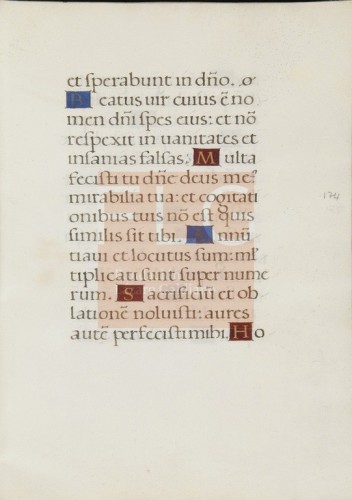 et sperabunt in dño.
Beatus uir cuius ẽ no
men dñi spes eius: et nõ
respexit in uanitates et
insanias falsas. Multa
fecisti tu dñe deus me⁹
mirabilia tua: et cogitati
onibus tuis nõ est quis
similis sit tibi. Annũ
tiaui et locutus sum: ml̃
tiplicati sunt super nume
rum. Sacrificiũ et ob
lationẽ noluisti: aures
autẽ perfecisti mihi. Ho
174